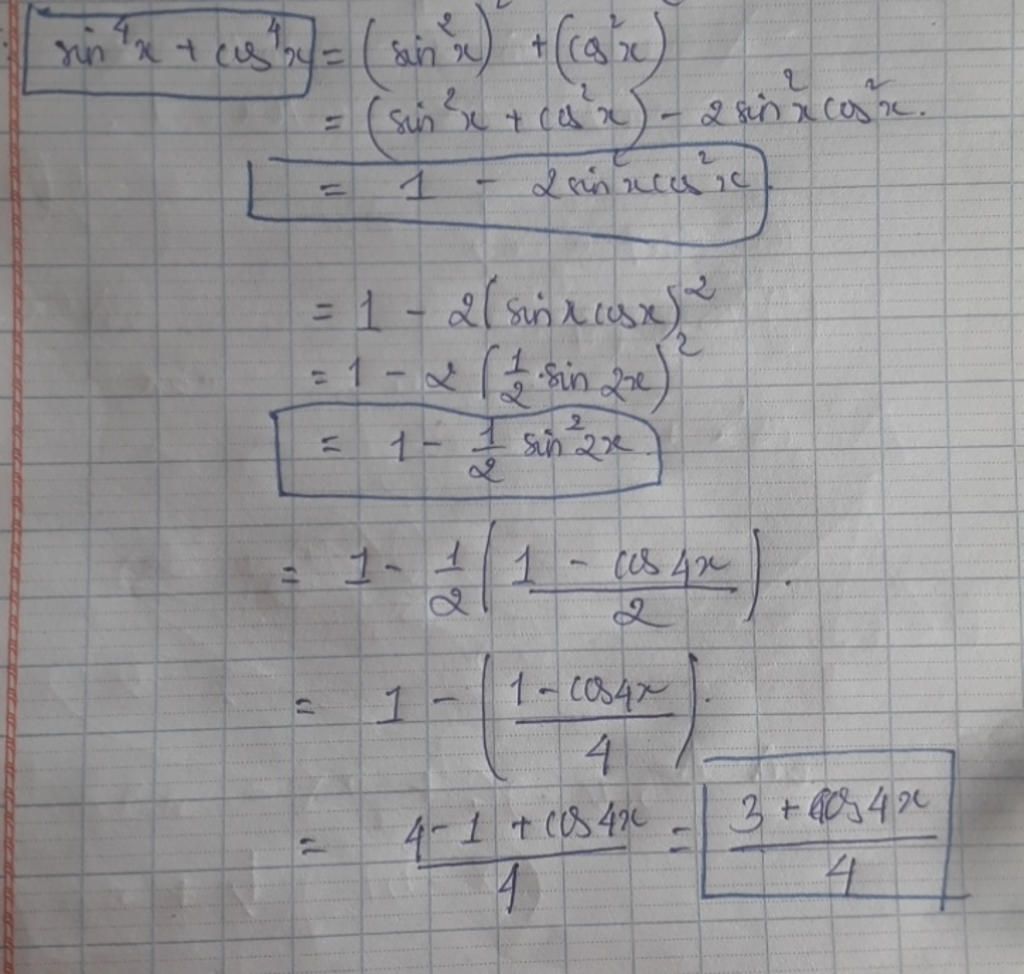 sin⁴x + cos⁴x = (sin²x)² + (cos²x)
= (sin²x + cos²x) - 2 sin²x cos²x.
= 1 - 2 sin²x cos²x
= 1 - 2(sin x cos x)²
= 1 - 2 (1/2 · sin 2x)²
= 1 - 1/2 sin²2x
= 1 - 1/2 ( (1 - cos 4x)/2 ).
= 1 - ( (1 - cos 4x)/4 ).
= (4 - 1 + cos 4x)/4 = (3 + cos 4x)/4